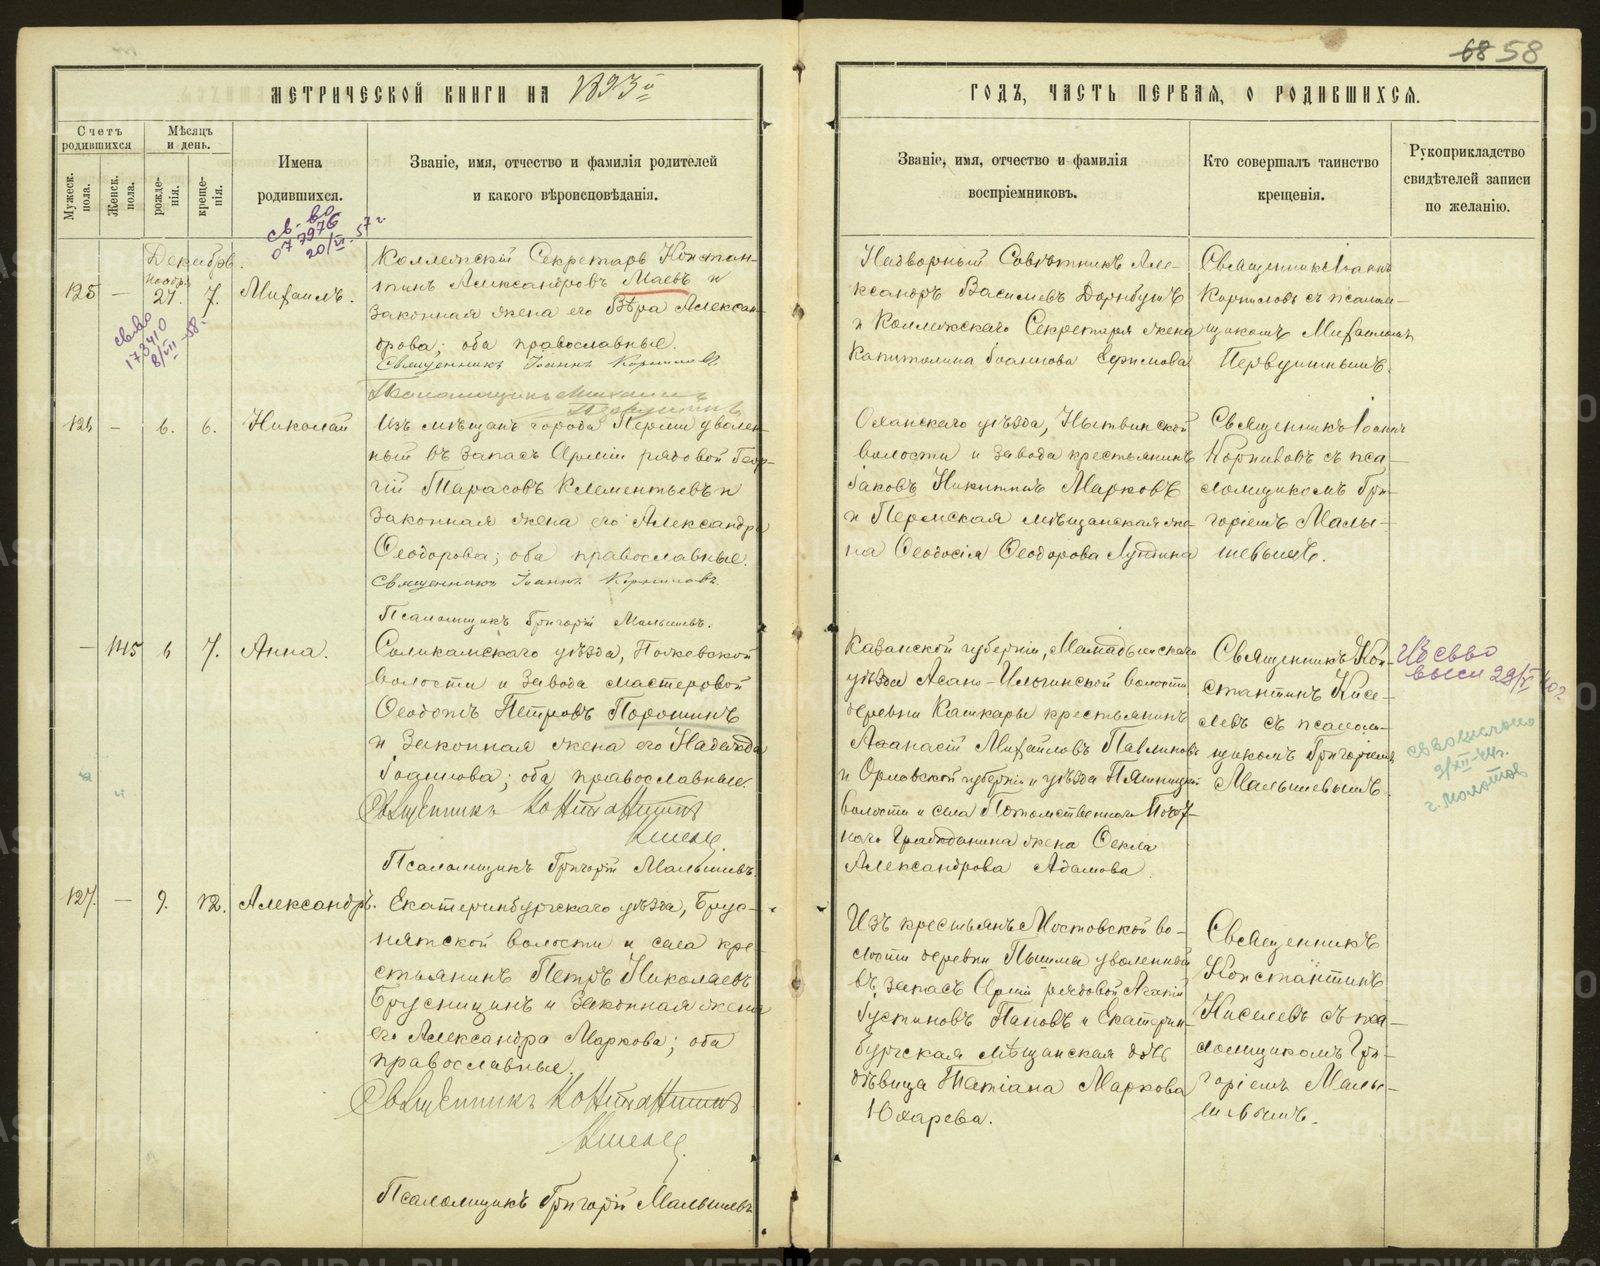 68 58
МЕТРИЧЕСКОЙ КНИГИ НА 1893 й
ГОДЪ, ЧАСТЬ ПЕРВАЯ, О РОДИВШИХСЯ.
Счетъ
родившихся
Мужеск.
пола.
Женск.
пола.
Мѣсяцъ
и день.
рожде-
нія.
креще-
нія.
Имена
родившихся.
Званіе, имя, отчество и фамилія родителей
и какого вѣроисповѣданія.
Званіе, имя, отчество и фамилія
воспріемниковъ.
Кто совершалъ таинство
крещенія.
Рукоприкладство
свидѣтелей записи
по желанію.
св-во
077976
20/VI-57 г
Декабрь.
125 — ноября 27. 7. Михаилъ.
св-во
17340
8/VII-58.
Коллежскій Секретарь Констан-
тинъ Александровъ Маевъ и
законная жена его Вѣра Алексан-
дрова; оба православные.
Священникъ Іоаннъ Корниловъ
Псаломщикъ Михаилъ
Первушинъ
Надворный Совѣтникъ Але-
ксандръ Васильевъ Дорнбушъ
и Коллежскаго Секретаря жена
Капитолина Іоаннова Ефимова
Священникъ Іоаннъ
Корниловъ съ псалом-
щикомъ Михаиломъ
Первушинымъ.
126 — 6. 6. Николай
Изъ мѣщанъ города Перми уволен-
ный въ запасъ Арміи рядовой Геор-
гій Тарасовъ Клементьевъ и
законная жена его Александра
Ѳеодорова; оба православные.
Священникъ Іоаннъ Корниловъ.
Псаломщикъ Григорій Малышевъ.
Оханскаго уѣзда, Нытвинской
волости и завода крестьянинъ
Іаковъ Никитинъ Марковъ
и Пермская мѣщанская же-
на Ѳеодосія Ѳеодорова Лунина
Священникъ Іоаннъ
Корниловъ съ пса-
ломщикомъ Гри-
горіемъ Малы-
шевымъ.
— 145 6 7. Анна.
Соликамскаго уѣзда, Пожевской
волости и завода мастеровой
Ѳеодотъ Петровъ Порошинъ
и законная жена его Надежда
Іоаннова; оба православные.
Священникъ Константинъ
Киселевъ
Псаломщикъ Григорій Малышевъ.
Казанской губерніи, Мамадышскаго
уѣзда Асано-Илюгинской волости
деревни Кашкары крестьянинъ
Аѳанасій Михайловъ Павлиновъ
и Орловской губерніи и уѣзда Пятницкой
волости и села Потомственнаго Почет-
наго Гражданина жена Ѳекла
Александрова Адамова.
Священникъ Кон-
стантинъ Кисе-
левъ съ псалом-
щикомъ Григоріемъ
Малышевымъ.
св-во
высл 29/V 40 г.
св-во выслано
9/XII-44 г.
г. Молотов
127. — 9. 12. Александръ.
Екатеринбургскаго уѣзда, Брус-
нятской волости и села кре-
стьянинъ Петръ Николаевъ
Брусницинъ и законная жена
его Александра Маркова; оба
православные.
Священникъ Константинъ
Киселевъ
Псаломщикъ Григорій Малышевъ
Изъ крестьянъ Мостовской во-
лости деревни Пышмы уволенный
въ запасъ Арміи рядовой Агапій
Іустиновъ Пановъ и Екатерин-
бургская мѣщанская дочь
дѣвица Татіана Маркова
Юхарева.
Священникъ
Константинъ
Киселевъ съ пса-
ломщикомъ Гри-
горіемъ Малы-
шевымъ.